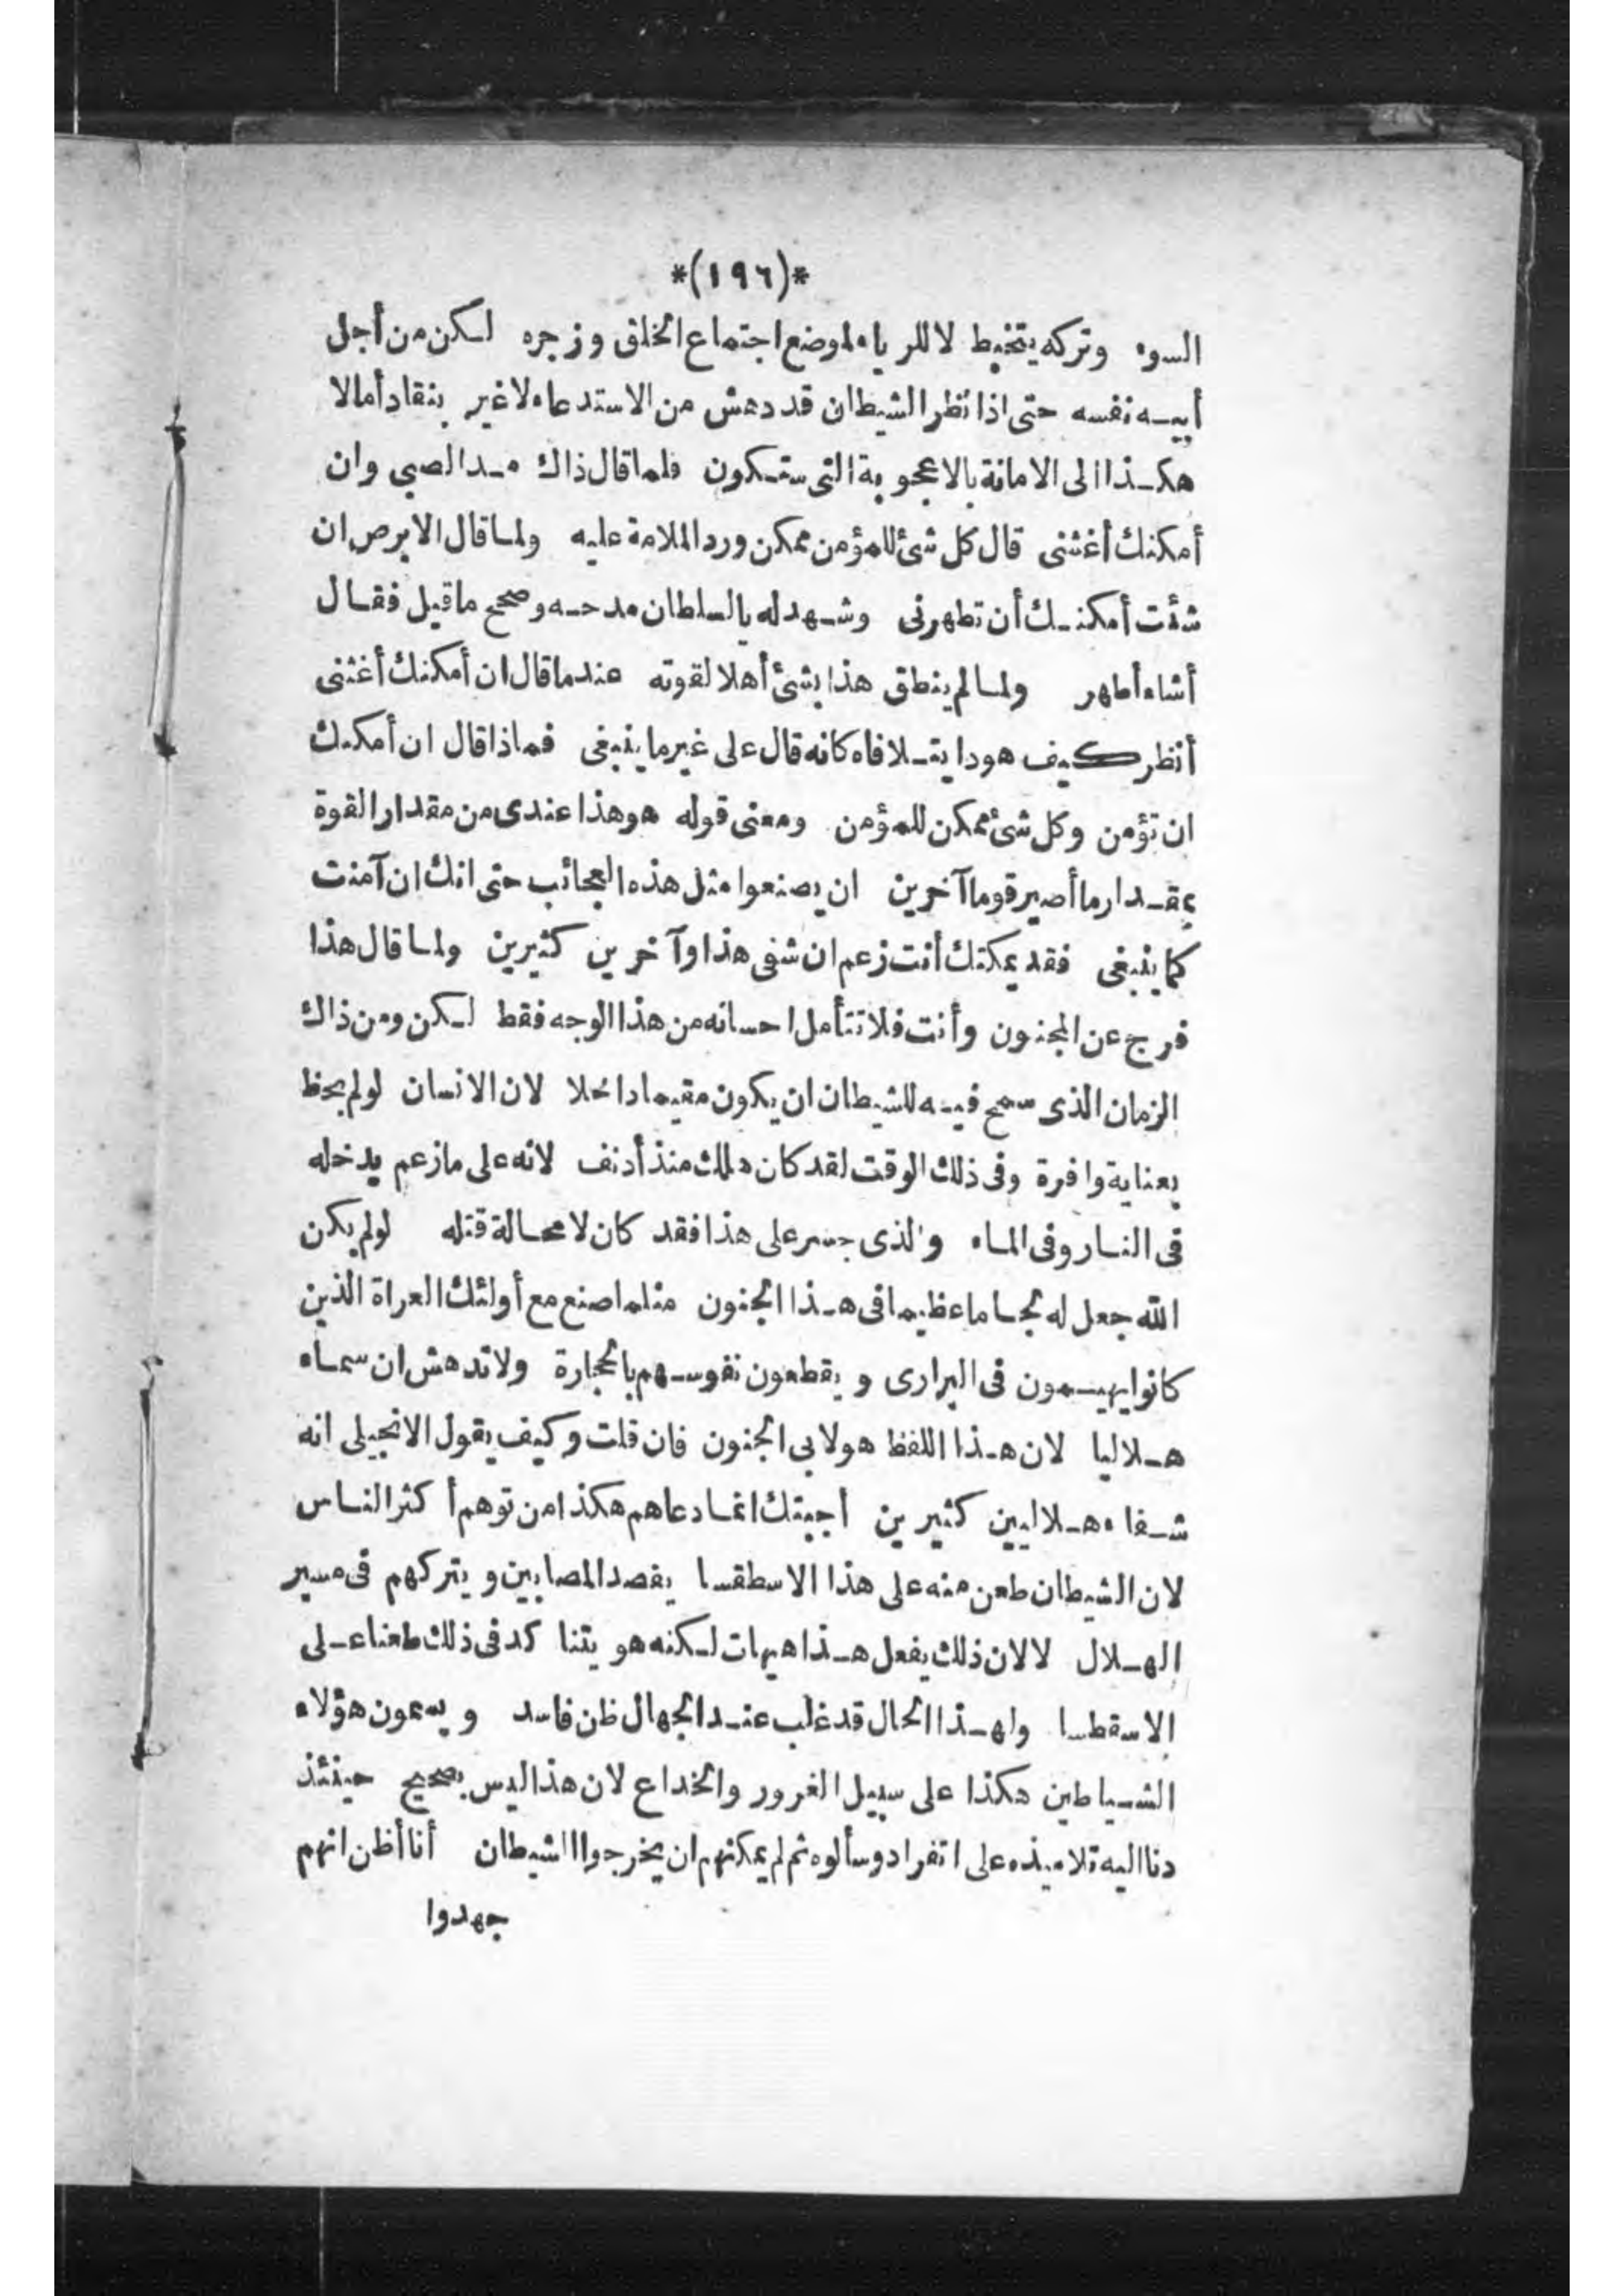 *(١٩٦)*
السوء وتركه يتخبط لا للرياء لموضع اجتماع الخلق وزجره لكن من أجل
أبيه نفسه حتى اذا نظر الشيطان قد دهش من الاستدعاء لا غير ينقاد أمالا
هكذا الى الامانة بالاعجوبة التي ستكون فلما قال ذاك مد الصبي وان
أمكنك أغثني قال كل شئ للمؤمن ممكن ورد الملامة عليه ولما قال الابرص ان
شئت أمكنك أن تطهرني وشهد له بالسلطان مدحه وصحح ما قيل فقال
أشاء أطهر ولما لم ينطق هذا بشئ أهلا لقوته عندما قال ان أمكنك أغثني
أنظر كيف هو ذا يتلافاه كانه قال على غير ما ينبغي فماذا قال ان أمكنك
ان تؤمن وكل شئ ممكن للمؤمن ومعنى قوله هو هذا عندى من مقدار القوة
بمقدار ما أصير قوما آخرين ان يصنعوا مثل هذه العجائب حتى انك ان آمنت
كما ينبغي فقد يمكنك أنت زعم ان شفي هذا وآخرين كثيرين ولما قال هذا
فرج عن المجنون وأنت فلا تتأمل احسانه من هذا الوجه فقط لكن ومن ذاك
الزمان الذى سمح فيه للشيطان ان يكون مقيما داخلا لان الانسان لو لم يحظ
بعناية وافرة وفى ذلك الوقت لقد كان هلك منذ أدنف لانه على ما زعم يدخله
فى النار وفى الماء والذى جسر على هذا فقد كان لا محالة قتله لو لم يكن
الله جعل له لجاما عظيما فى هذا الجنون مثلما صنع مع أولئك العراة الذين
كانوا يهيمون فى البرارى ويقطعون نفوسهم بالحجارة ولا تدهش ان سماه
هلاليا لان هذا اللفظ هو لابى المجنون فان قلت وكيف يقول الانجيلى انه
شفاء هلاليين كثيرين أجبتك انما دعاهم هكذا من توهم أكثر الناس
لان الشيطان طعن منه على هذا الاسطقسا يقصد المصابين ويتركهم فى مسير
الهلال لا لان ذلك يفعل هذا هيهات لكنه هو يتنا كد فى ذلك طعنا على
الاسقطسا ولهذا الحال قد غلب عند الجهال ظن فاسد ويدعون هؤلاء
الشياطين هكذا على سبيل الغرور والخداع لان هذا ليس بصحيح حينئذ
دنا اليه تلاميذه على انفراد وسألوه ثم لم يمكنهم ان يخرجوا الشيطان أنا أظن انهم
جهدوا